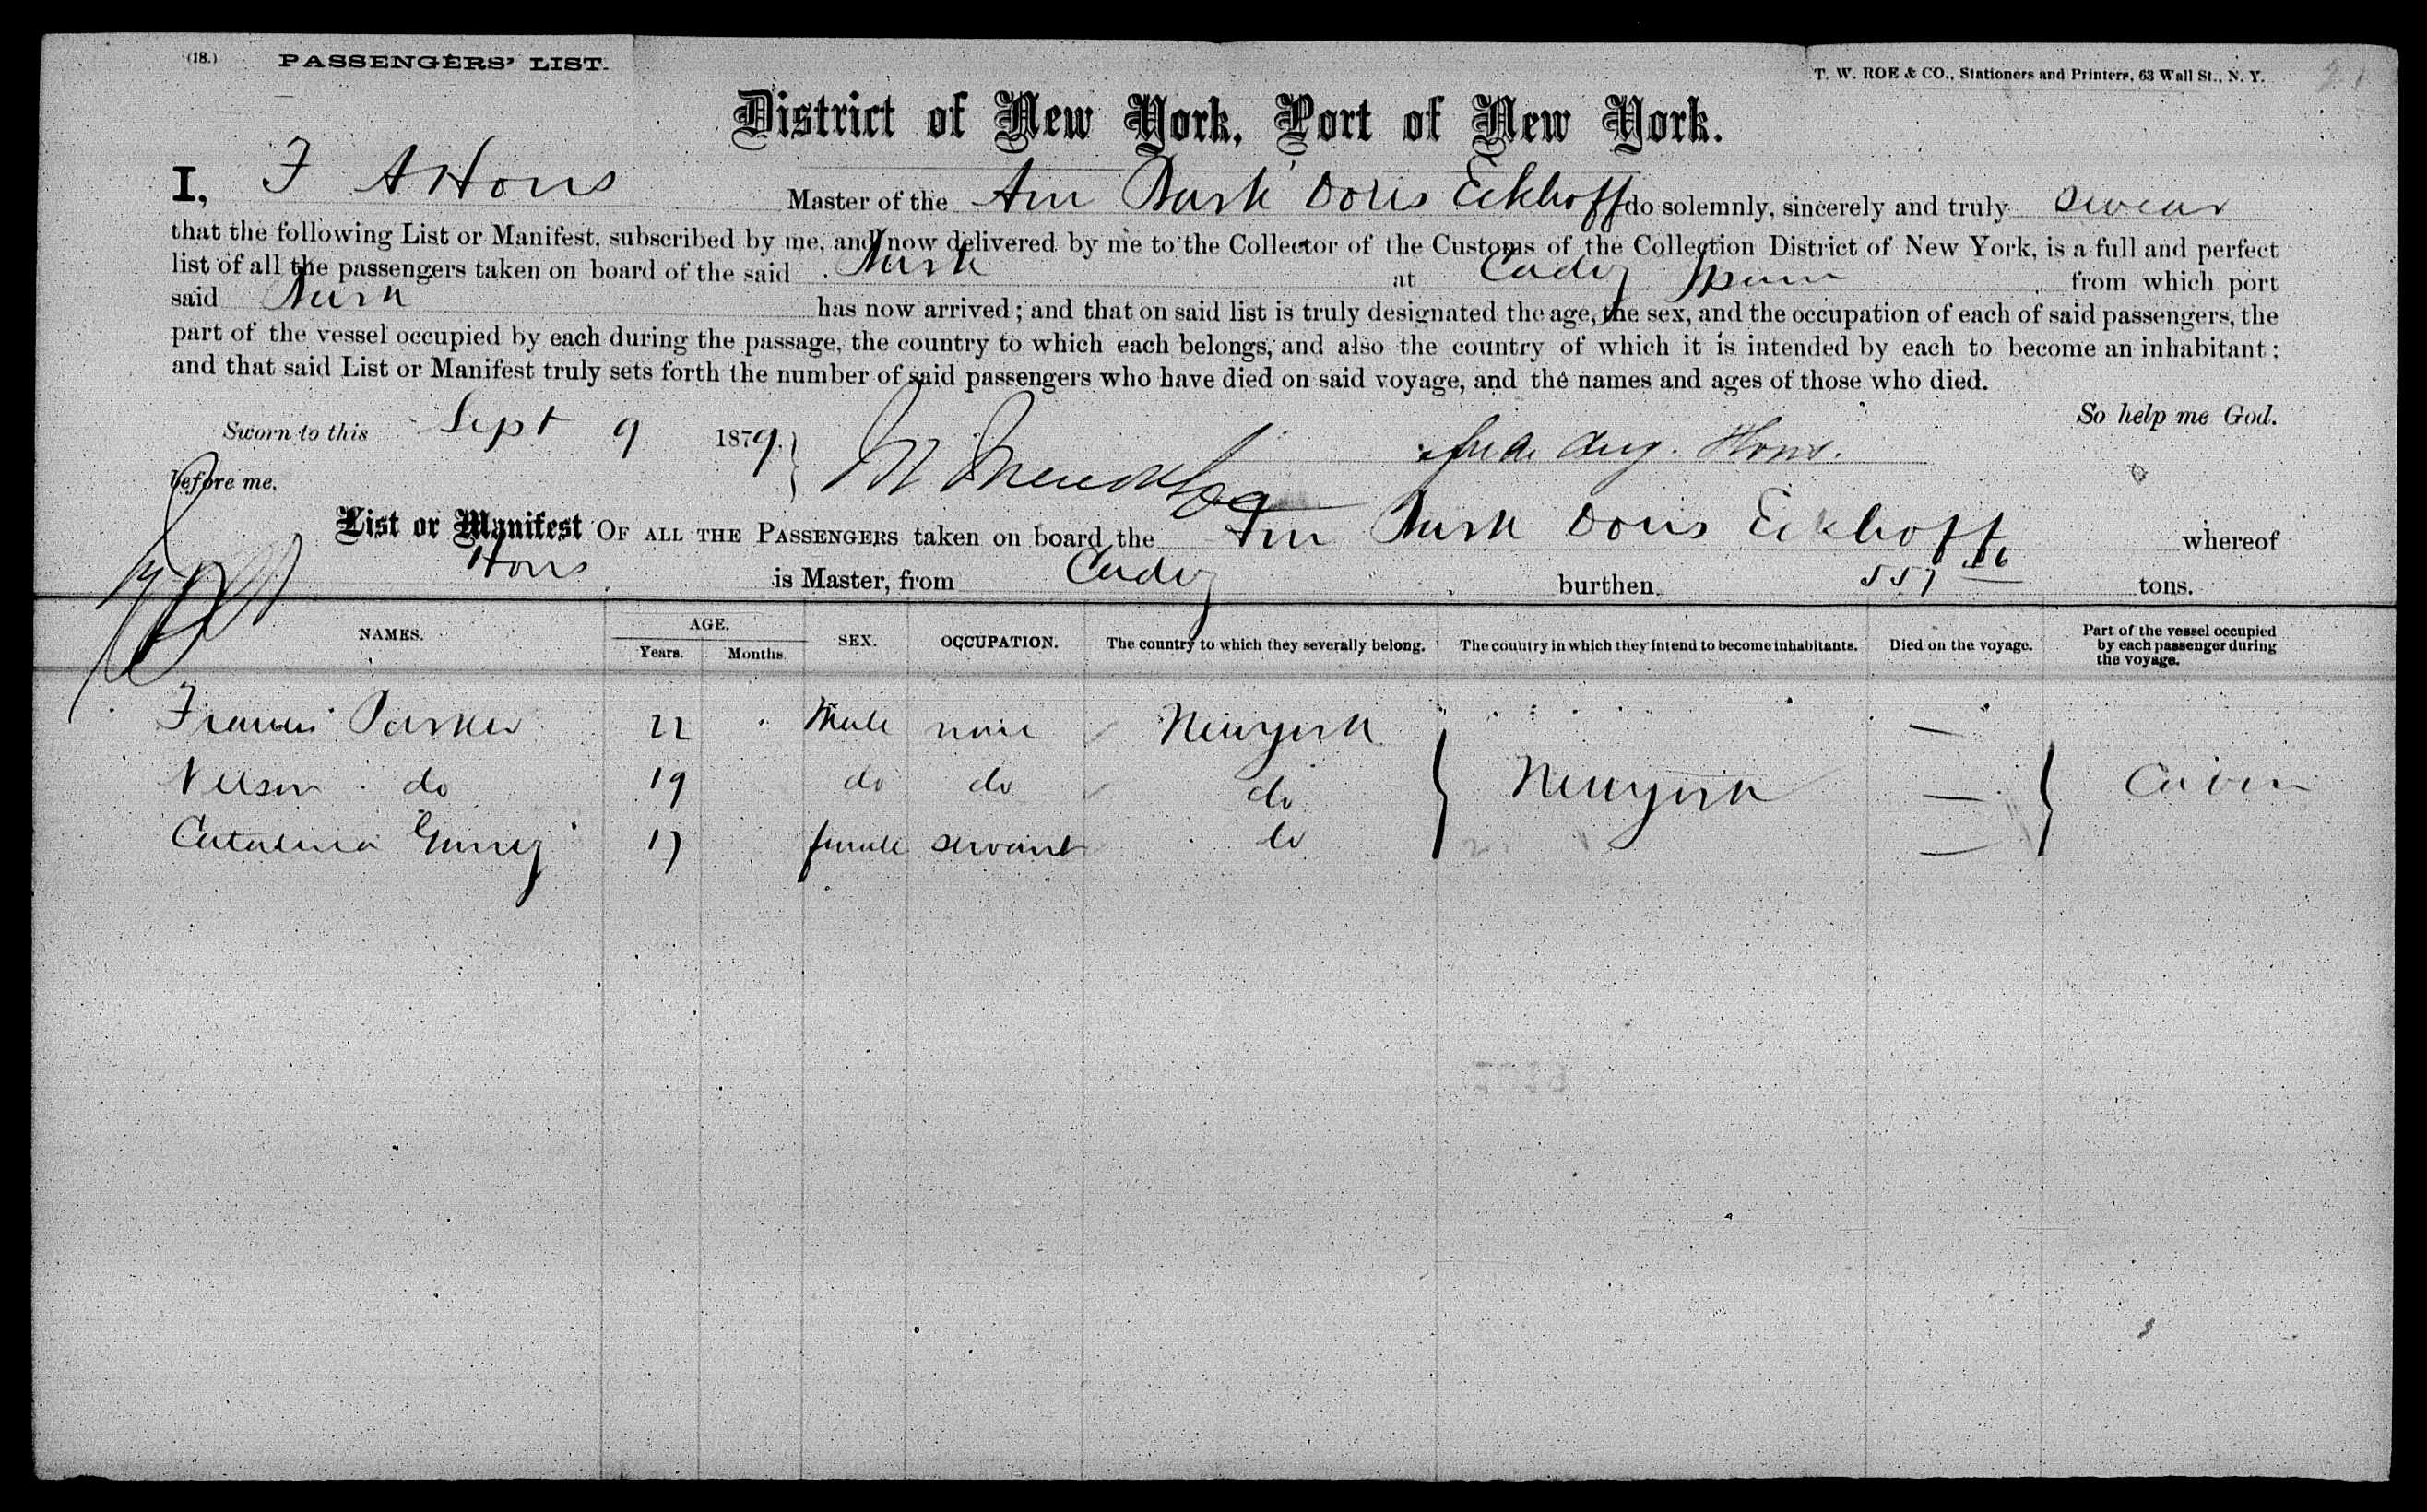 (18.) PASSENGERS' LIST. T. W. ROE & CO., Stationers and Printers, 63 Wall St., N. Y.
District of New York, Port of New York.
I, F A Hons Master of the Am Bark Doris Eckhoff do solemnly, sincerely and truly swear
that the following List or Manifest, subscribed by me, and now delivered by me to the Collector of the Customs of the Collection District of New York, is a full and perfect
list of all the passengers taken on board of the said Bark at Cadiz Spain from which port
said Bark has now arrived; and that on said list is truly designated the age, the sex, and the occupation of each of said passengers, the
part of the vessel occupied by each during the passage, the country to which each belongs, and also the country of which it is intended by each to become an inhabitant;
and that said List or Manifest truly sets forth the number of said passengers who have died on said voyage, and the names and ages of those who died.
So help me God.
Sworn to this Sept 9 1879. Aug. Hons.
before me.
List or Manifest OF ALL THE PASSENGERS taken on board the Am Bark Doris Eckhoff whereof
Hons is Master, from Cadiz burthen 557 tons.
NAMES. AGE. Years. Months. SEX. OCCUPATION. The country to which they severally belong. The country in which they intend to become inhabitants. Died on the voyage. Part of the vessel occupied by each passenger during the voyage.
Francis Parker 22 Male none Newyork —
Nelson do 19 do do do Newyork — Cabin
Catalina 17 female servant do —